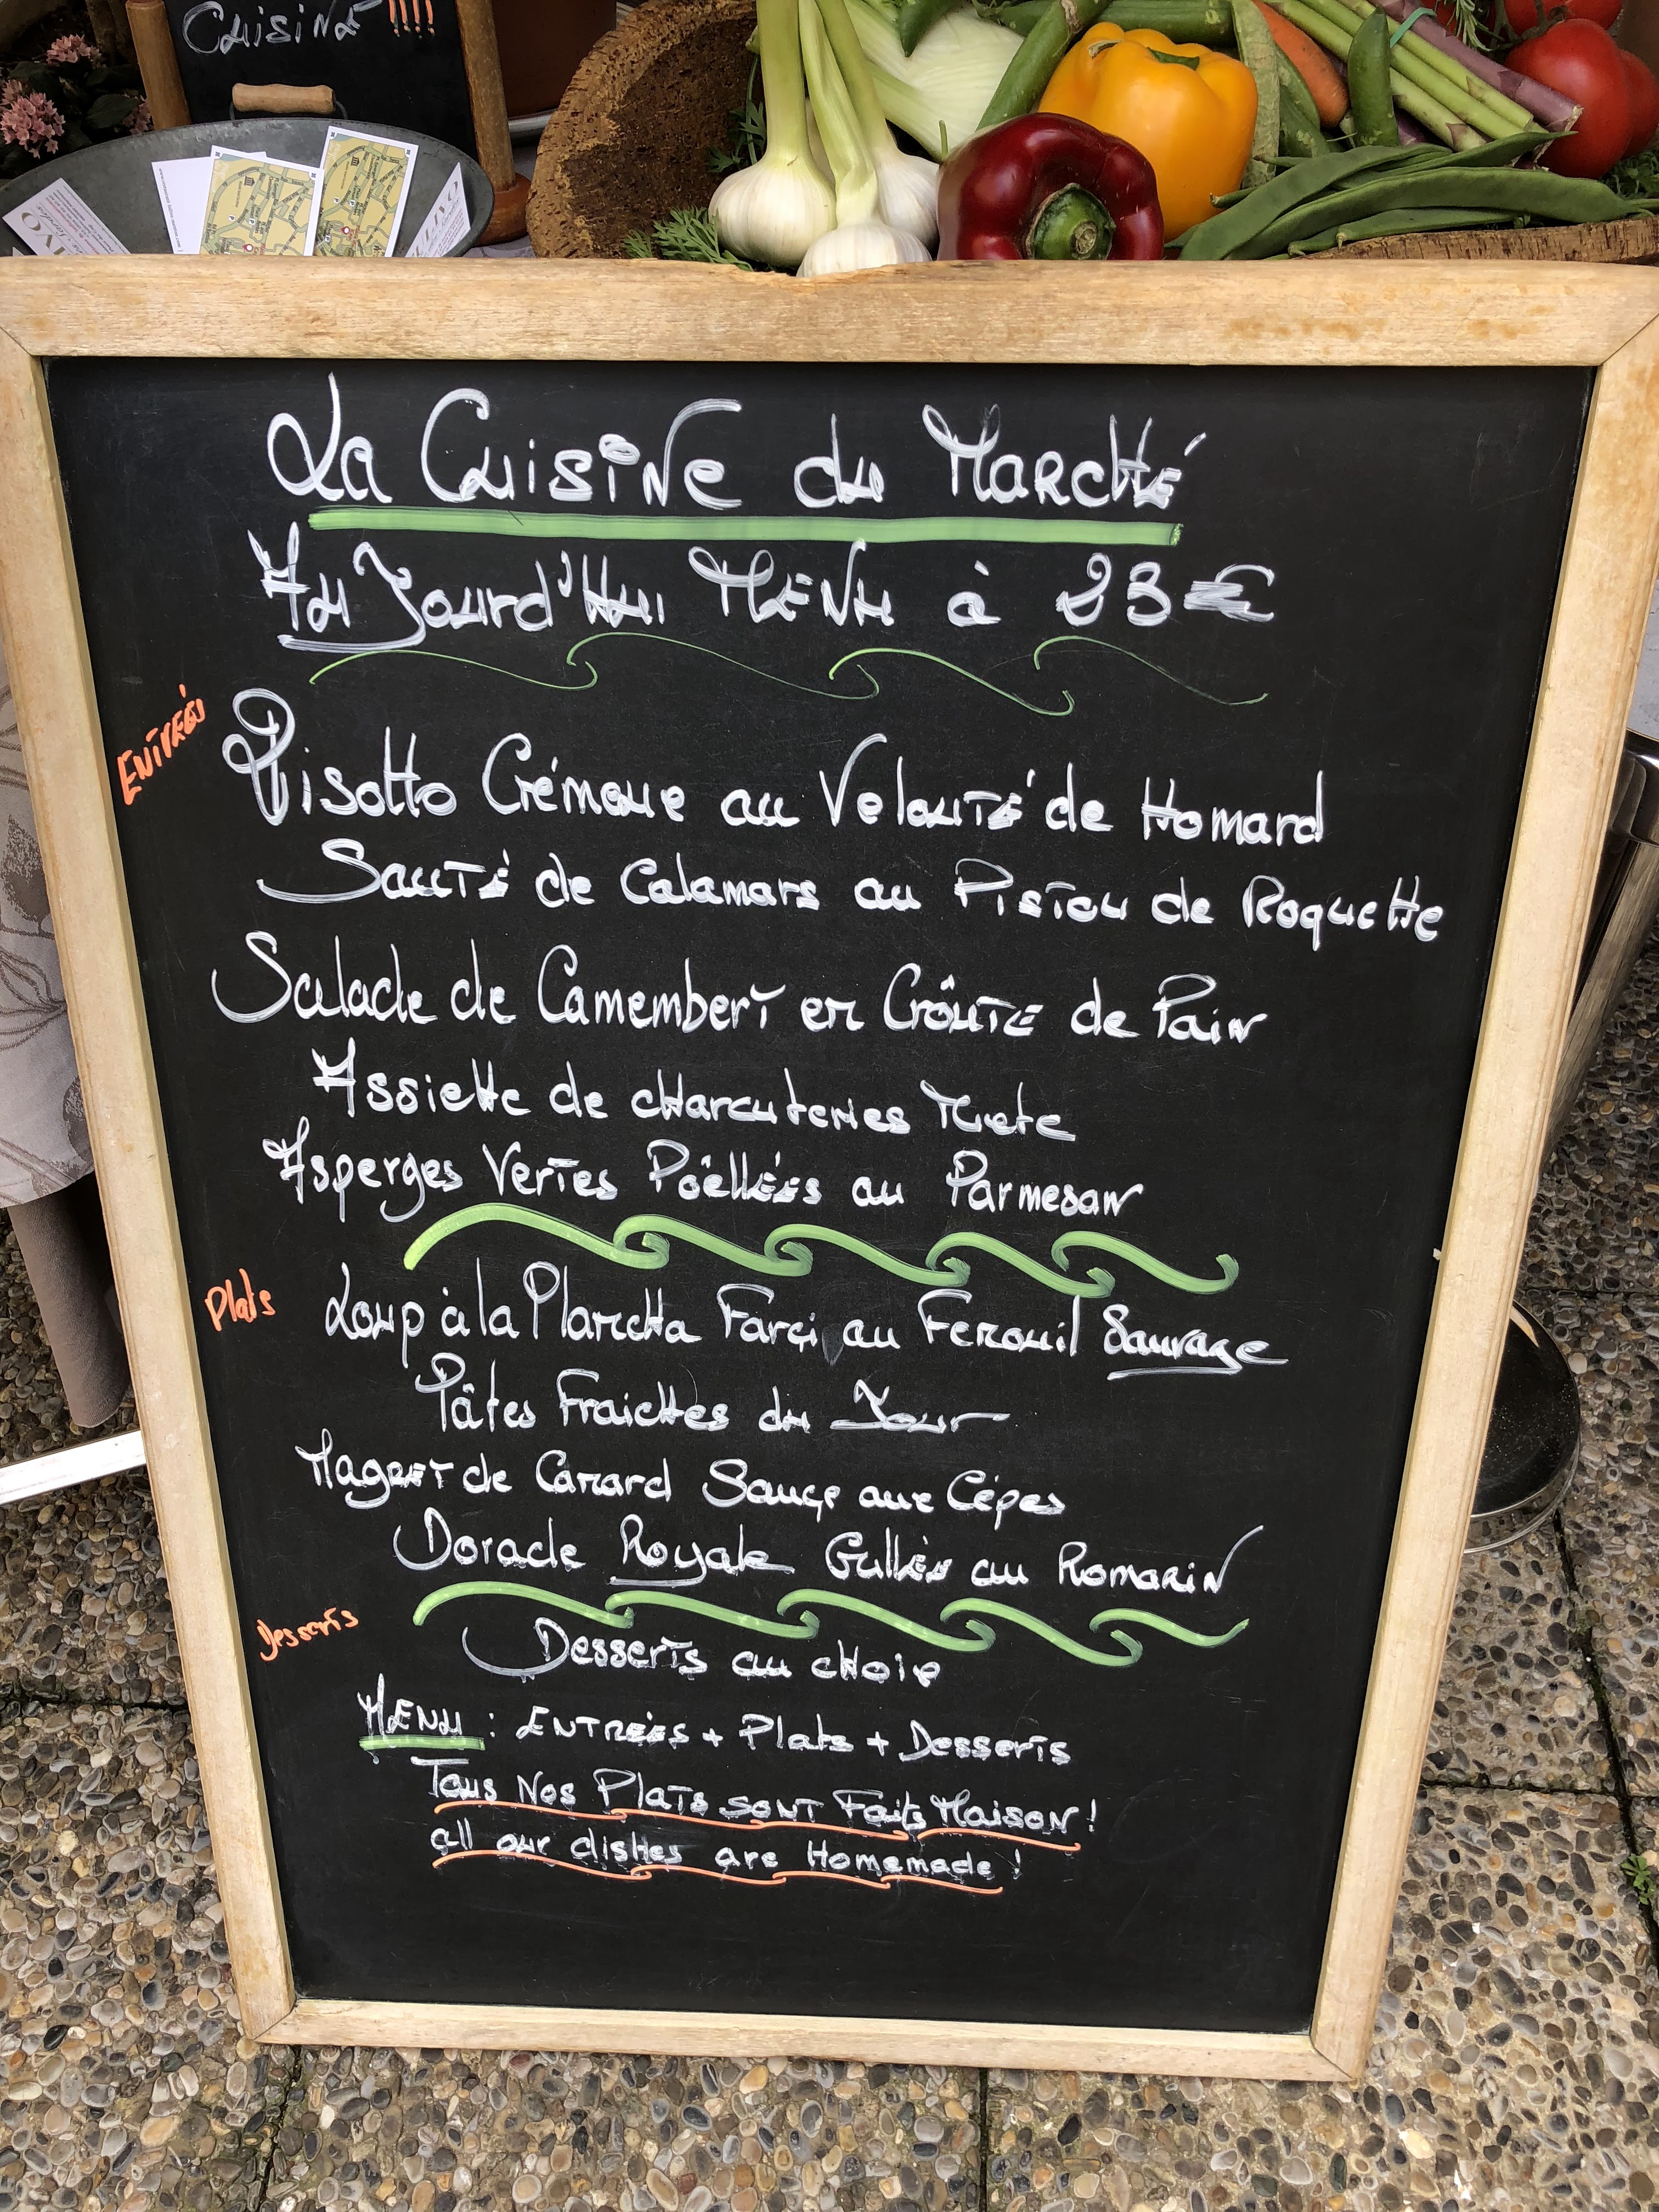 Cuisine !!!!
La Cuisine du Marché
Aujourd'Hui Menu à 23€
Entrées
Risotto Crémeux au Velouté de Homard
Sauté de Calamars au Pistou de Roquette
Salade de Camembert en Croûte de Pain
Assiette de charcuteries Mixte
Asperges Vertes Poêllées au Parmesan
Plats
Loup à la Plancha Farçi au Fenouil Sauvage
Pâtes Fraiches du Jour
Magret de Canard Sauçe aux Cépes
Dorade Royale Gullés au Romarin
Desserts
Desserts au choix
Menu : Entrées + Plats + Desserts
Tous Nos Plats sont Faits Maison !
all our dishes are Homemade !